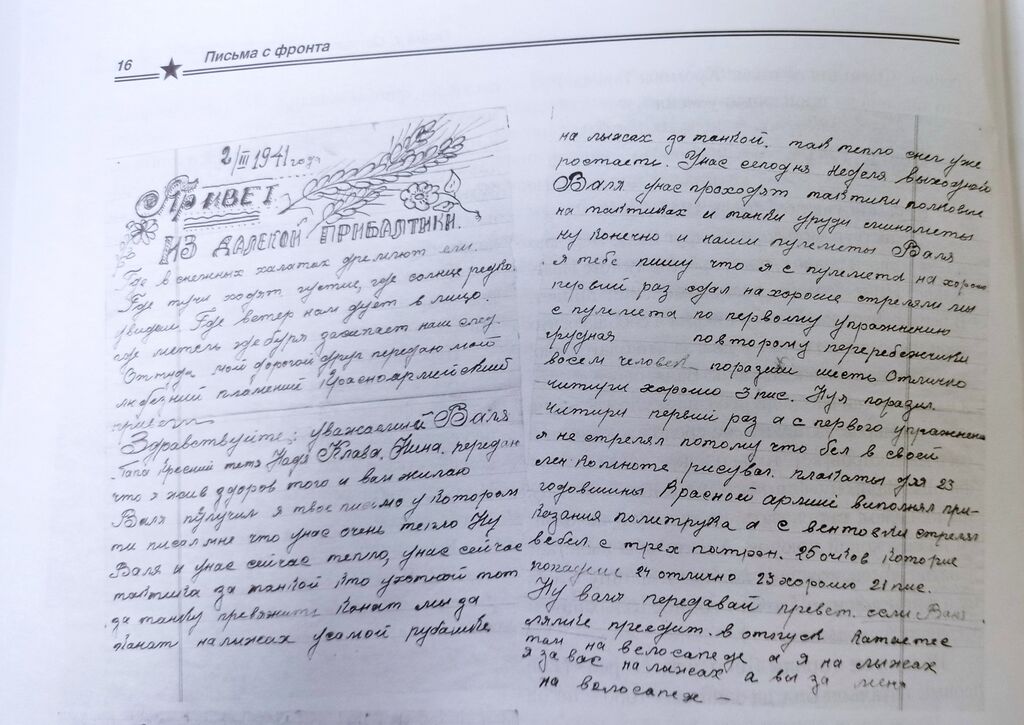 16
Письма с фронта
2/III 1941 года
Привет
из далекой Прибалтики.
Где в снежных халатах дремлют ели.
Где тучи ходят густие, где солнце редко.
увидем. Где ветер нам дует в лицо.
где метель где буря засипает наш след.
Откуда, мой дорогой друг передаю мой
пламений Красноармейский
привет
Здравствуйте; уважаемий Валя
папа Кресний тетя Надя Клава, Нина, передаю
что я жив здоров того и вам жилаю
Валя получил я твое письмо у котором
ти писал мне что у нас очень тепло Ну
Валя и унас сейчас тепло, унас сейчас
тактика за танкой кто ухоткой тот
за танку превяжить канат мы за
канат налижах усамой рубашке
на лыжах за танкой. так тепло снег уже
ростаеть. Унас сегодня неделя выходной
Валя унас проходят тактики полковие
на тактиках и танки
ну конечно и наши пулеметы Валя
я тебе пишу что я с пулемета на хорошо
первий раз сдал на хороше стреляли ми
с пулемета по первому упражнению
грудная повторому перебежчики
восем человек поразиш шесть Отлично
читири хорошо 3 пис. Ну я поразил
читири первий раз а с первого упражнения
я не стрелял потому что бел в своей
лен комноте рисувал. плакаты для 23
годовшины Красной армий виполнял при-
казания политрука а с вентовки стрелял
вебел с трех патрон. 25 очков которие
24 отлично 23 хорошо 21 пис.
Ну валя передавай превет. если Ваня
преедит. в отпуск катаетес
там на велосапеде а я на лыжах
я за вас на лыжах а вы за меня
на велосапеж —